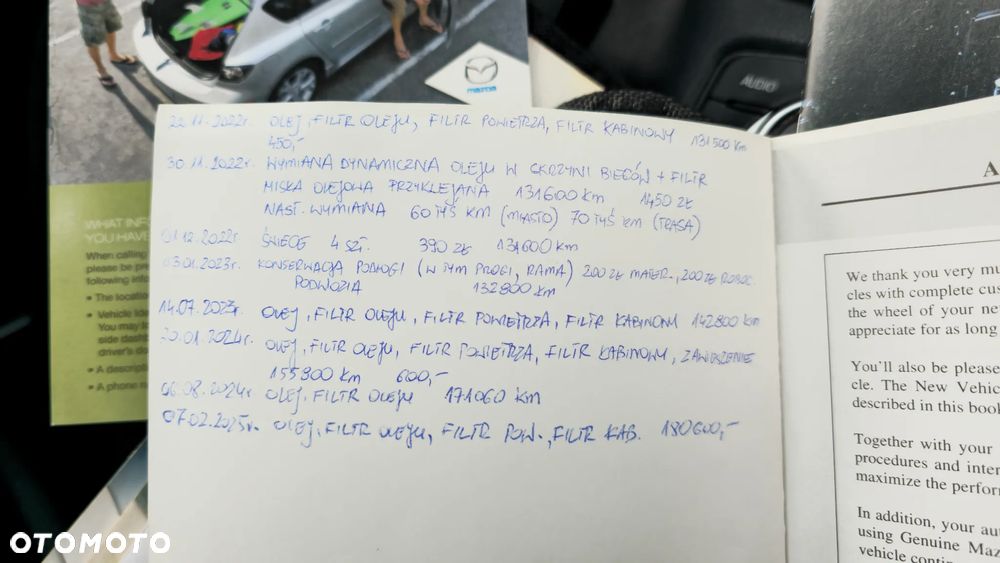 mazda
AUDIO
22.11.2022r. OLEJ, FILTR OLEJU, FILTR POWIETRZA, FILTR KABINOWY 131500 Km
450,-
30.11.2022r. WYMIANA DYNAMICZNA OLEJU W SKRZYNI BIEGÓW + FILTR
MISKA OLEJOWA PRZYKLEJANA 131600 km 1450 ZŁ
NAST. WYMIANA 60 TYŚ KM (MIASTO) 70 TYŚ KM (TRASA)
01.12.2022r ŚWIECE 4 SZT. 390 ZŁ 131600 km
03.01.2023r. KONSERWACJA PODŁOGI (W TYM PROGI, RAMA) 200 ZŁ MATER., 200 ZŁ ROBOC.
PODWOZIA 132800 km
14.07.2023r. OLEJ, FILTR OLEJU, FILTR POWIETRZA, FILTR KABINOWY 142800 km
20.01.2024r. OLEJ, FILTR OLEJU, FILTR POWIETRZA, FILTR KABINOWY, ZAWIESZENIE
155900 Km 600,-
06.08.2024r OLEJ, FILTR OLEJU 171060 KM
07.02.2025r. OLEJ, FILTR OLEJU, FILTR POW., FILTR KAB. 180600,-
WHAT INF
YOU HAVE
When calling
please be pre
following info
• The locatio
• Vehicle Ide
You may l
side dashb
driver's do
• A descripti
• A phone n
A
We thank you very mu
cles with complete cus
the wheel of your ne
appreciate for as long
You'll also be please
cle. The New Vehic
described in this book
Together with your
procedures and inter
maximize the perform
In addition, your aut
using Genuine Maz
vehicle contin
OTOMOTO